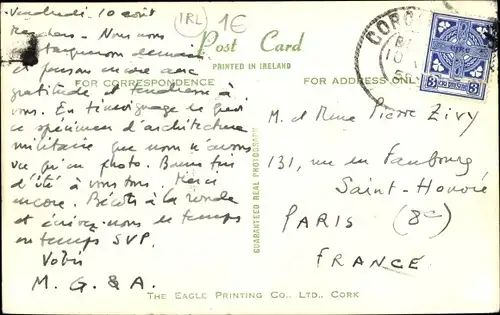 Vendredi. 10 août
(IRL) 1€
Post Card
PRINTED IN IRELAND
FOR CORRESPONDENCE
FOR ADDRESS ONLY
Nous nous
et pensons encore avec
gratitude et tendresse à
vous. En témoignage de quoi
ce spécimen d'architecture
militaire que nous n'avons
vu qu'en photo. Bonne fin
d'été à vous tous. Merci
encore. Bécots à la ronde
et écrivez-nous de temps
en temps SVP.
Vobis
M. G. & A.
GUARANTEED REAL PHOTOGRAPH
M. et Mme Pierre Zivy
131, rue du Faubourg
Saint-Honoré
PARIS (8e)
FRANCE
THE EAGLE PRINTING CO., LTD., CORK
3 3